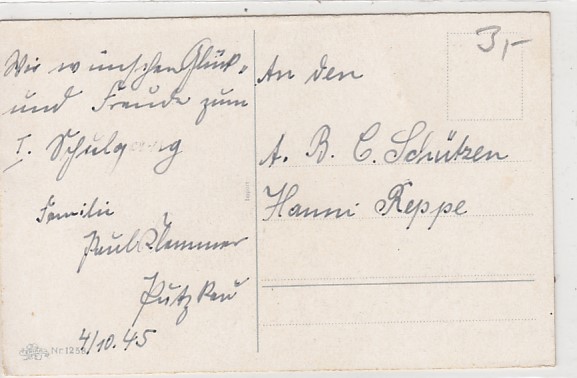 Wir wünschen Glück-
und Freude zum
I. Schulgang
Familie
Paul Klemmer
Putzkau
4/10.45
Nr 125
An den
A. B. C. Schützen
Hanni Reppe
3,-